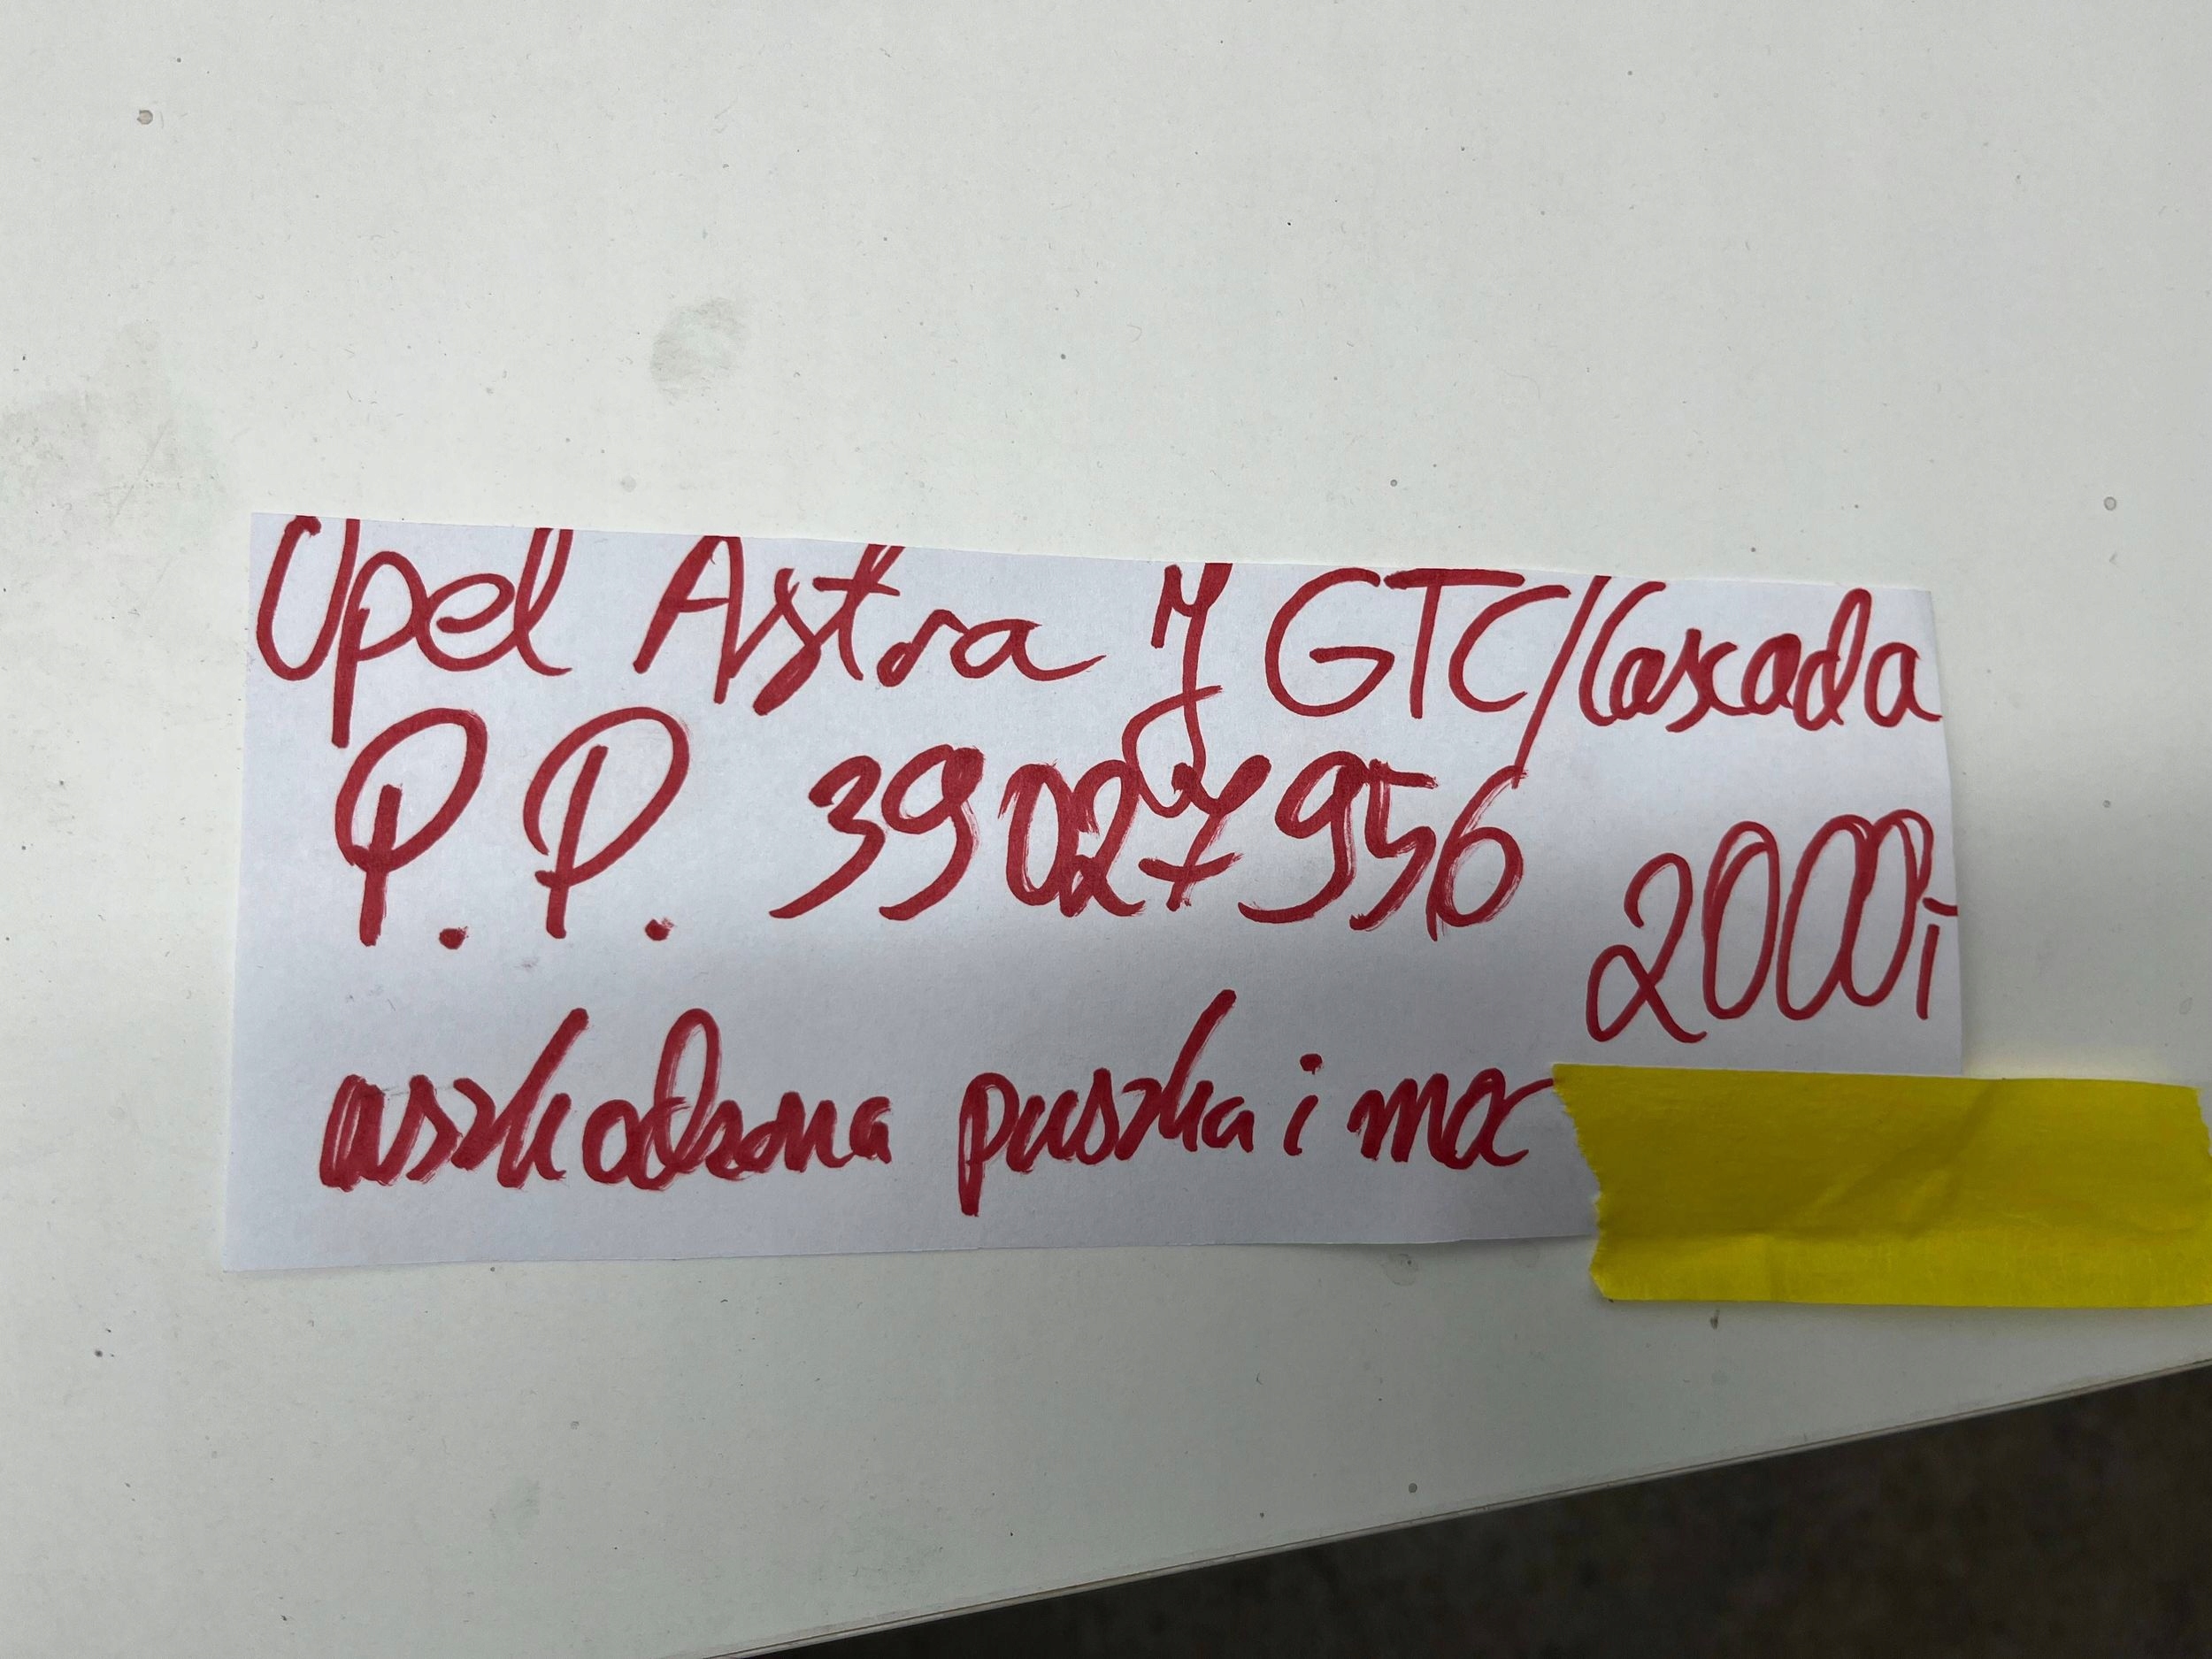 Opel Astra J GTC/Cascada
P.P. 39027956
2000,-
uszkodzona puszka i moc